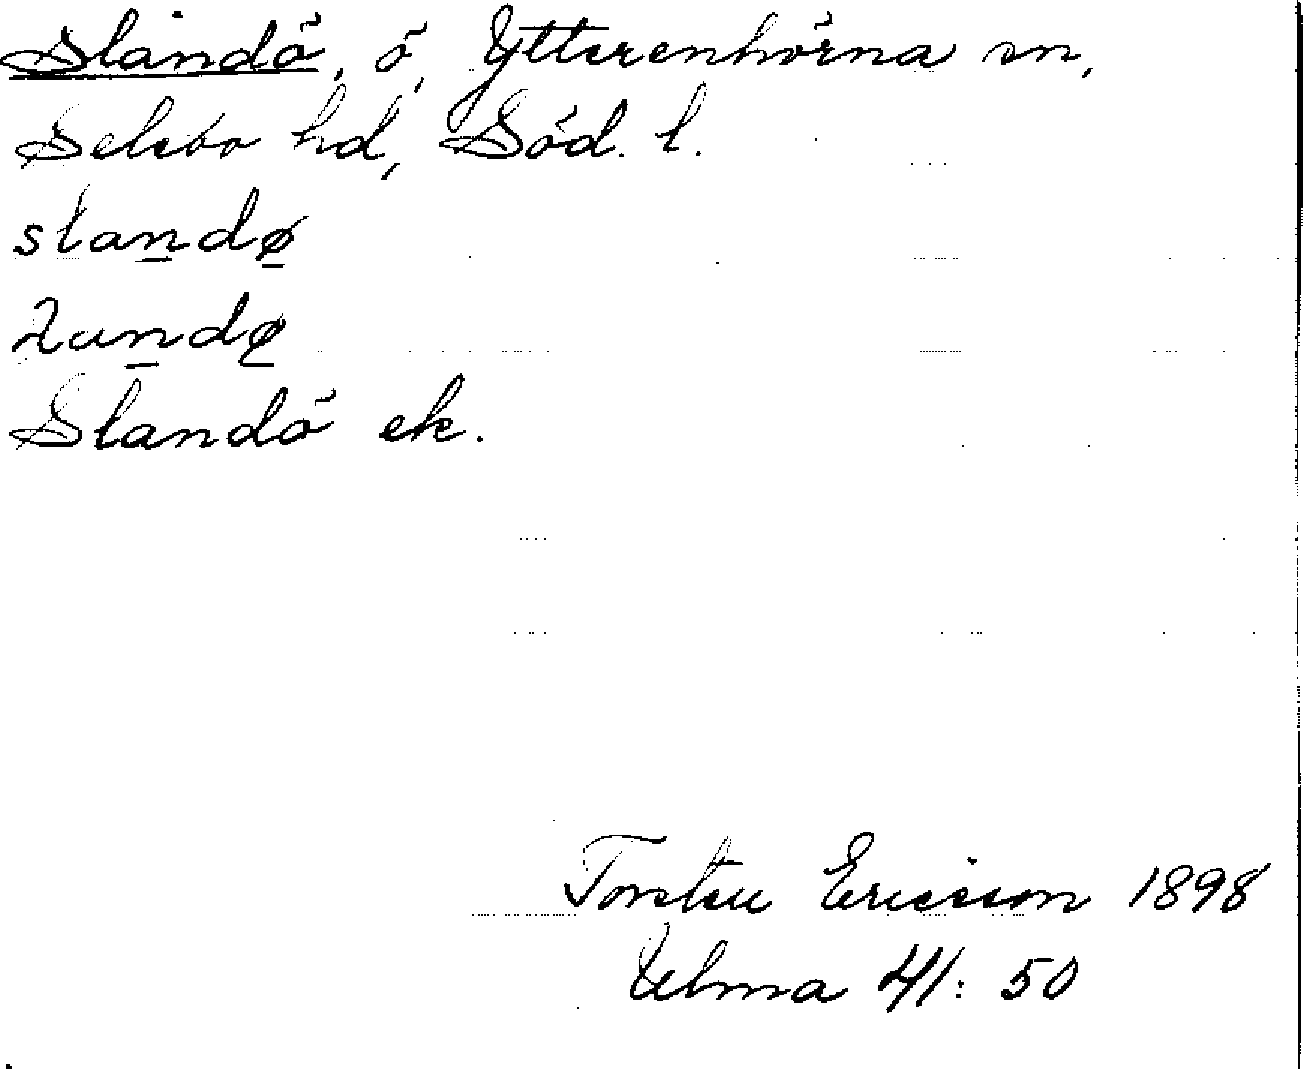 Slandö, ö, Ytterenhörna sn,
Selebo hd, Söd. l.
slandø
landø
Slandö ek.
Torsten Ericsson 1898
Ulma 41:50